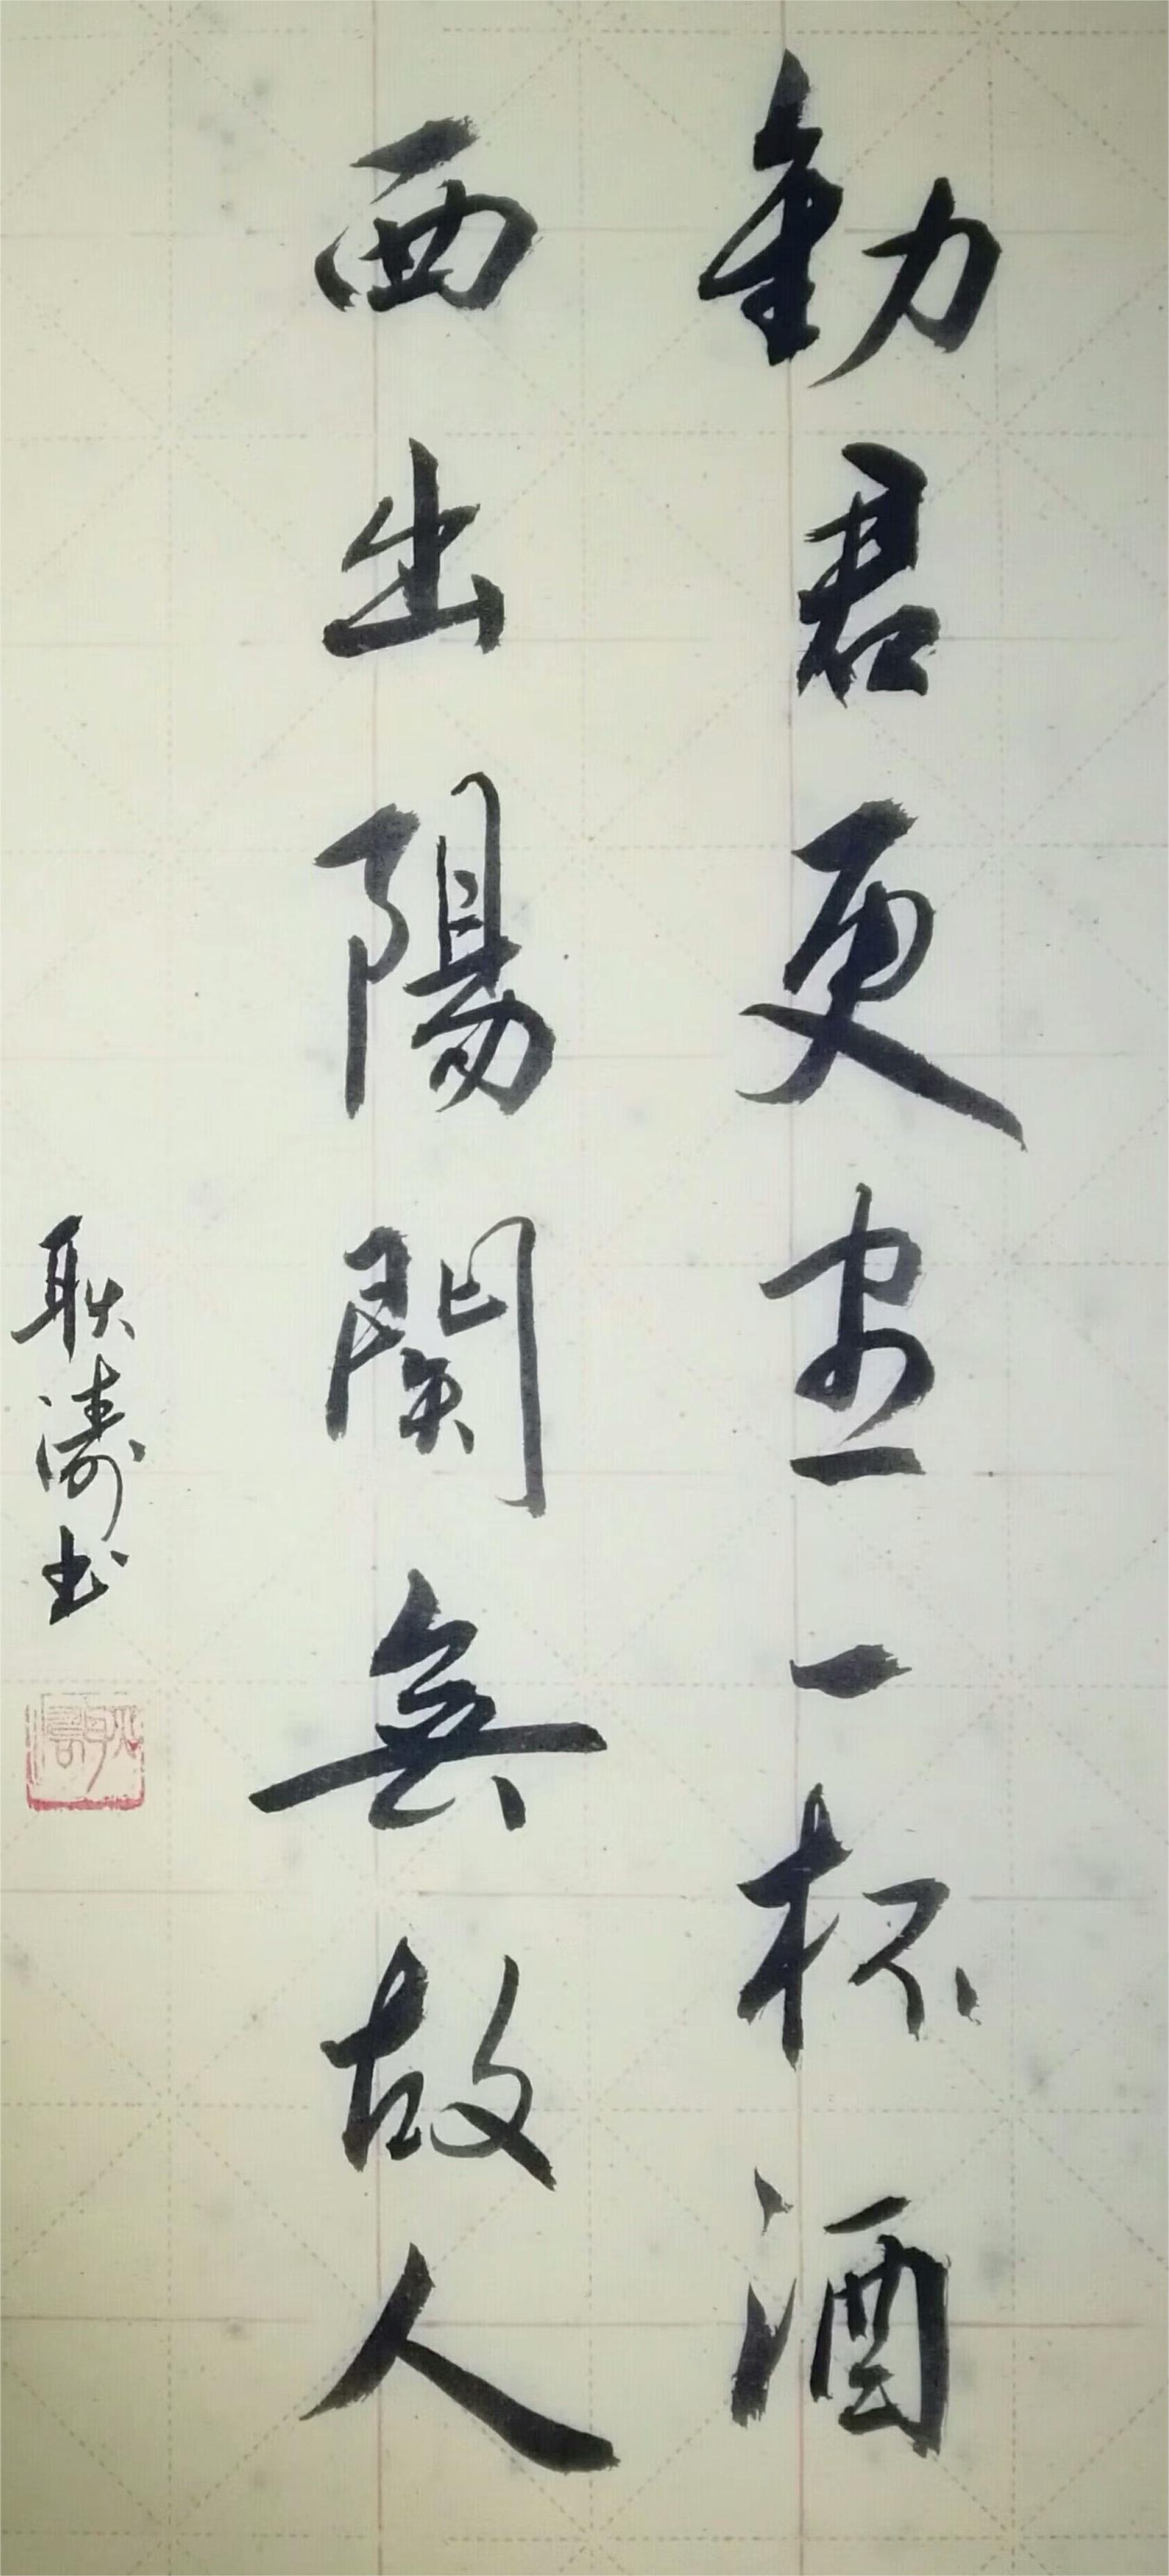 勸君更盡一杯酒
西出陽關無故人
耿濤书